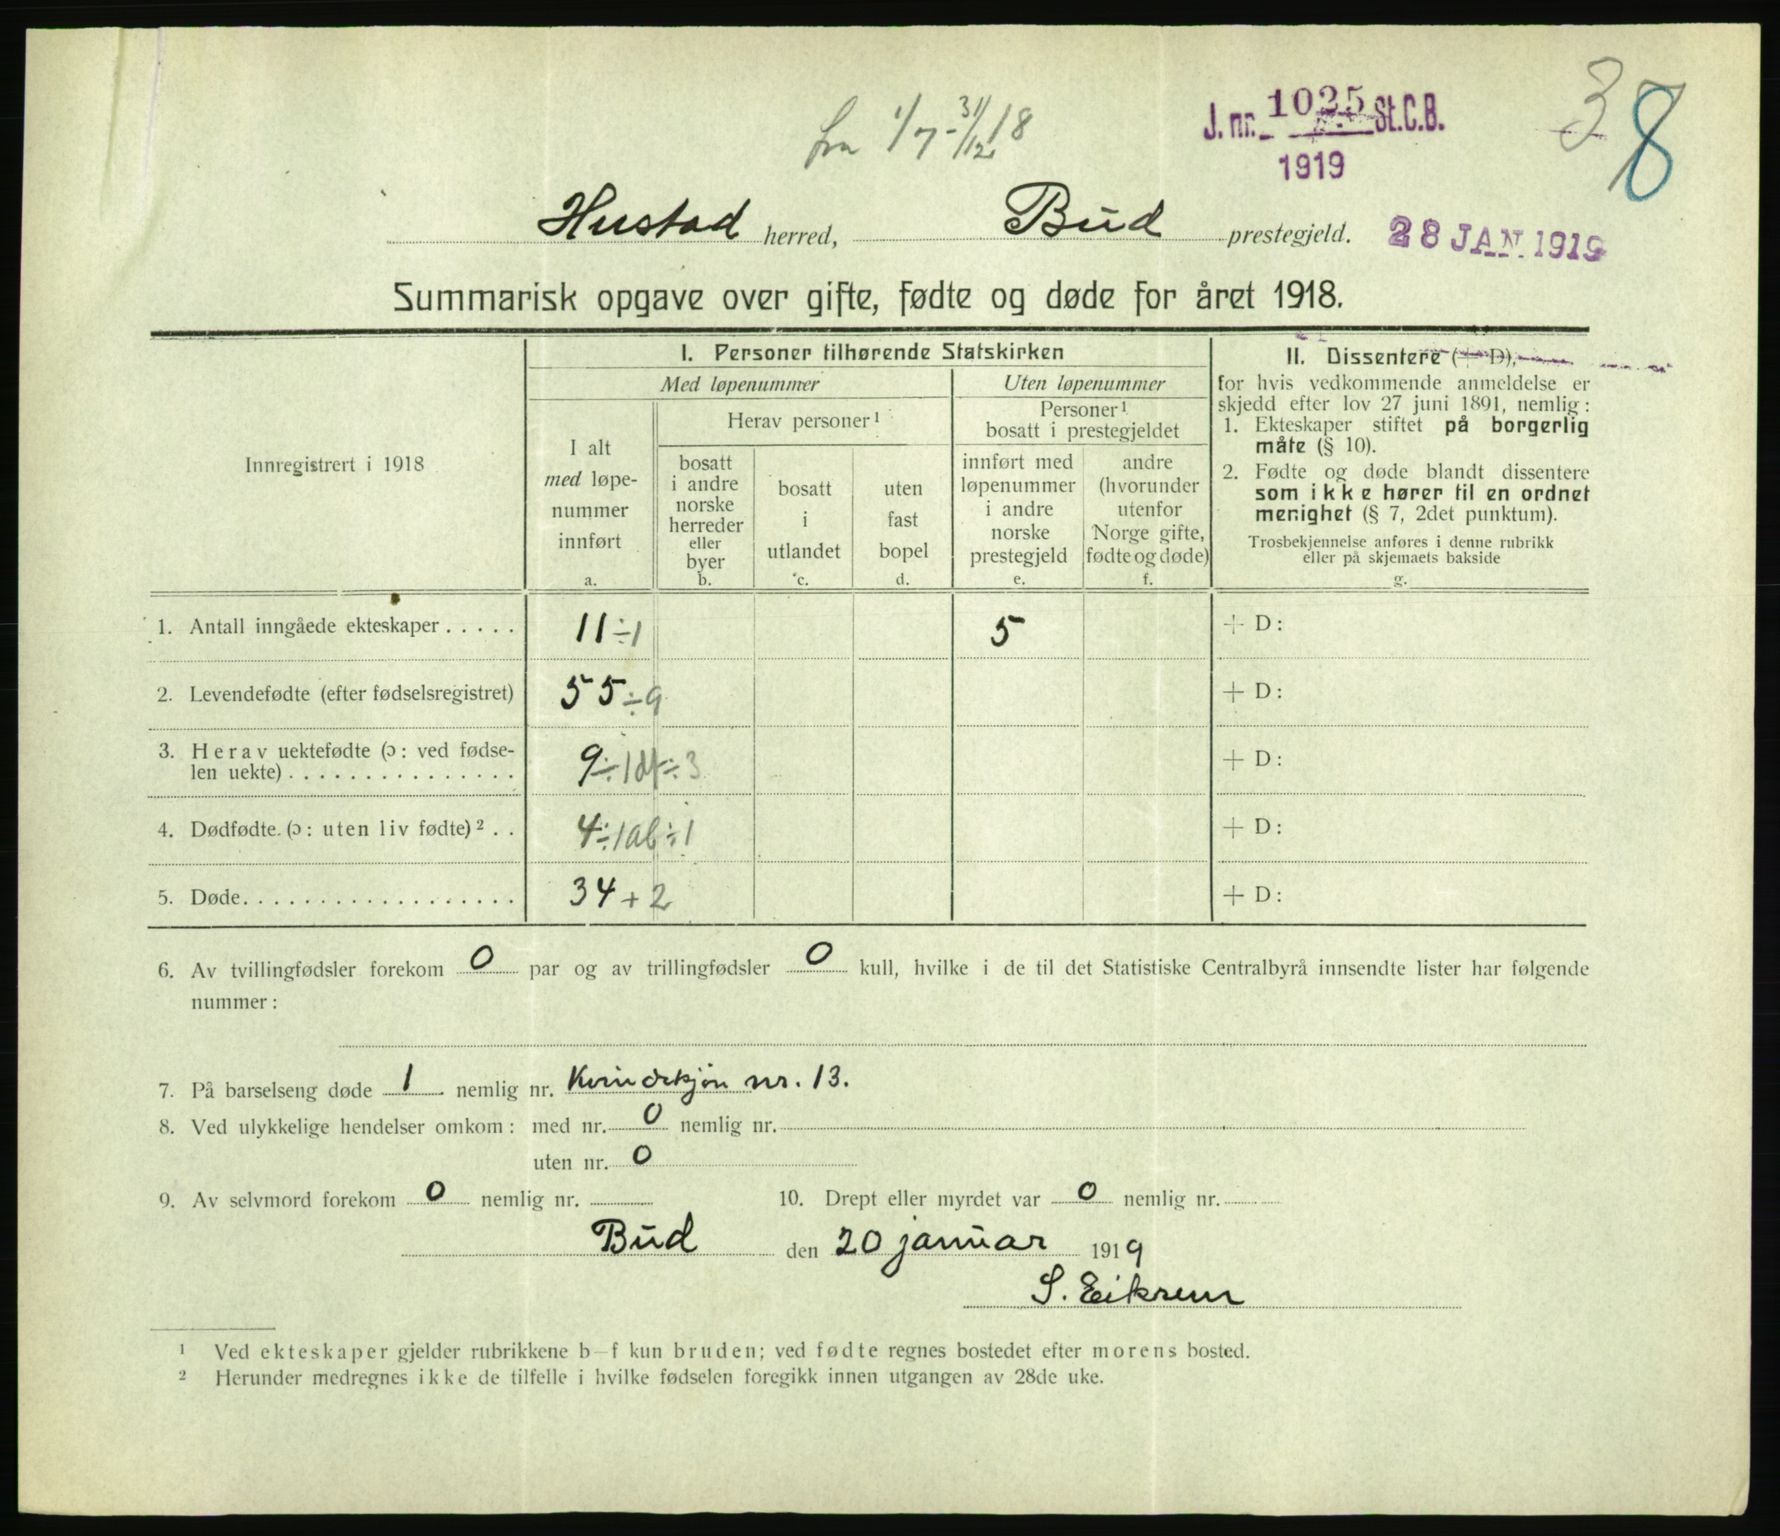 fra 1/7 - 31/12 18
J. nr. 1025 St.C.B.
1919
38
Hustad herred, Bud prestegjeld.
28 JAN. 1919
Summarisk opgave over gifte, fødte og døde for året 1918.
Innregistrert i 1918
I. Personer tilhørende Statskirken
Med løpenummer
Uten løpenummer
I alt
med løpe-
nummer
innført
a.
Herav personer ¹
bosatt
i andre
norske
herreder
eller
byer
b.
bosatt
i
utlandet
c.
uten
fast
bopel
d.
Personer ¹
bosatt i prestegjeldet
innført med
løpenummer
i andre
norske
prestegjeld
e.
andre
(hvorunder
utenfor
Norge gifte,
fødte og døde)
f.
II. Dissentere (+ D),
for hvis vedkommende anmeldelse er
skjedd efter lov 27 juni 1891, nemlig:
1. Ekteskaper stiftet på borgerlig
måte (§ 10).
2. Fødte og døde blandt dissentere
som ikke hører til en ordnet
menighet (§ 7, 2det punktum).
Trosbekjennelse anføres i denne rubrikk
eller på skjemaets bakside
g.
1. Antall inngåede ekteskaper . . . . . 11 ÷1 5 + D:
2. Levendefødte (efter fødselsregistret) 55 ÷9 + D:
3. Herav uektefødte (ɔ: ved fødse-
len uekte) . . . . . . . . . . . . . . . 9 ÷1df ÷3 + D:
4. Dødfødte. (ɔ: uten liv fødte) ² . . 4 ÷1ab ÷1 + D:
5. Døde. . . . . . . . . . . . . . . . . . 34 + 2 + D:
6. Av tvillingfødsler forekom 0 par og av trillingfødsler 0 kull, hvilke i de til det Statistiske Centralbyrå innsendte lister har følgende
nummer:
7. På barselseng døde 1 nemlig nr. Kvindekjøn nr. 13.
8. Ved ulykkelige hendelser omkom: med nr. 0 nemlig nr.
uten nr. 0
9. Av selvmord forekom 0 nemlig nr. 10. Drept eller myrdet var 0 nemlig nr.
Bud den 20 januar 1919
S. Eikrem
¹ Ved ekteskaper gjelder rubrikkene b–f kun bruden; ved fødte regnes bostedet efter morens bosted.
² Herunder medregnes ikke de tilfelle i hvilke fødselen foregikk innen utgangen av 28de uke.